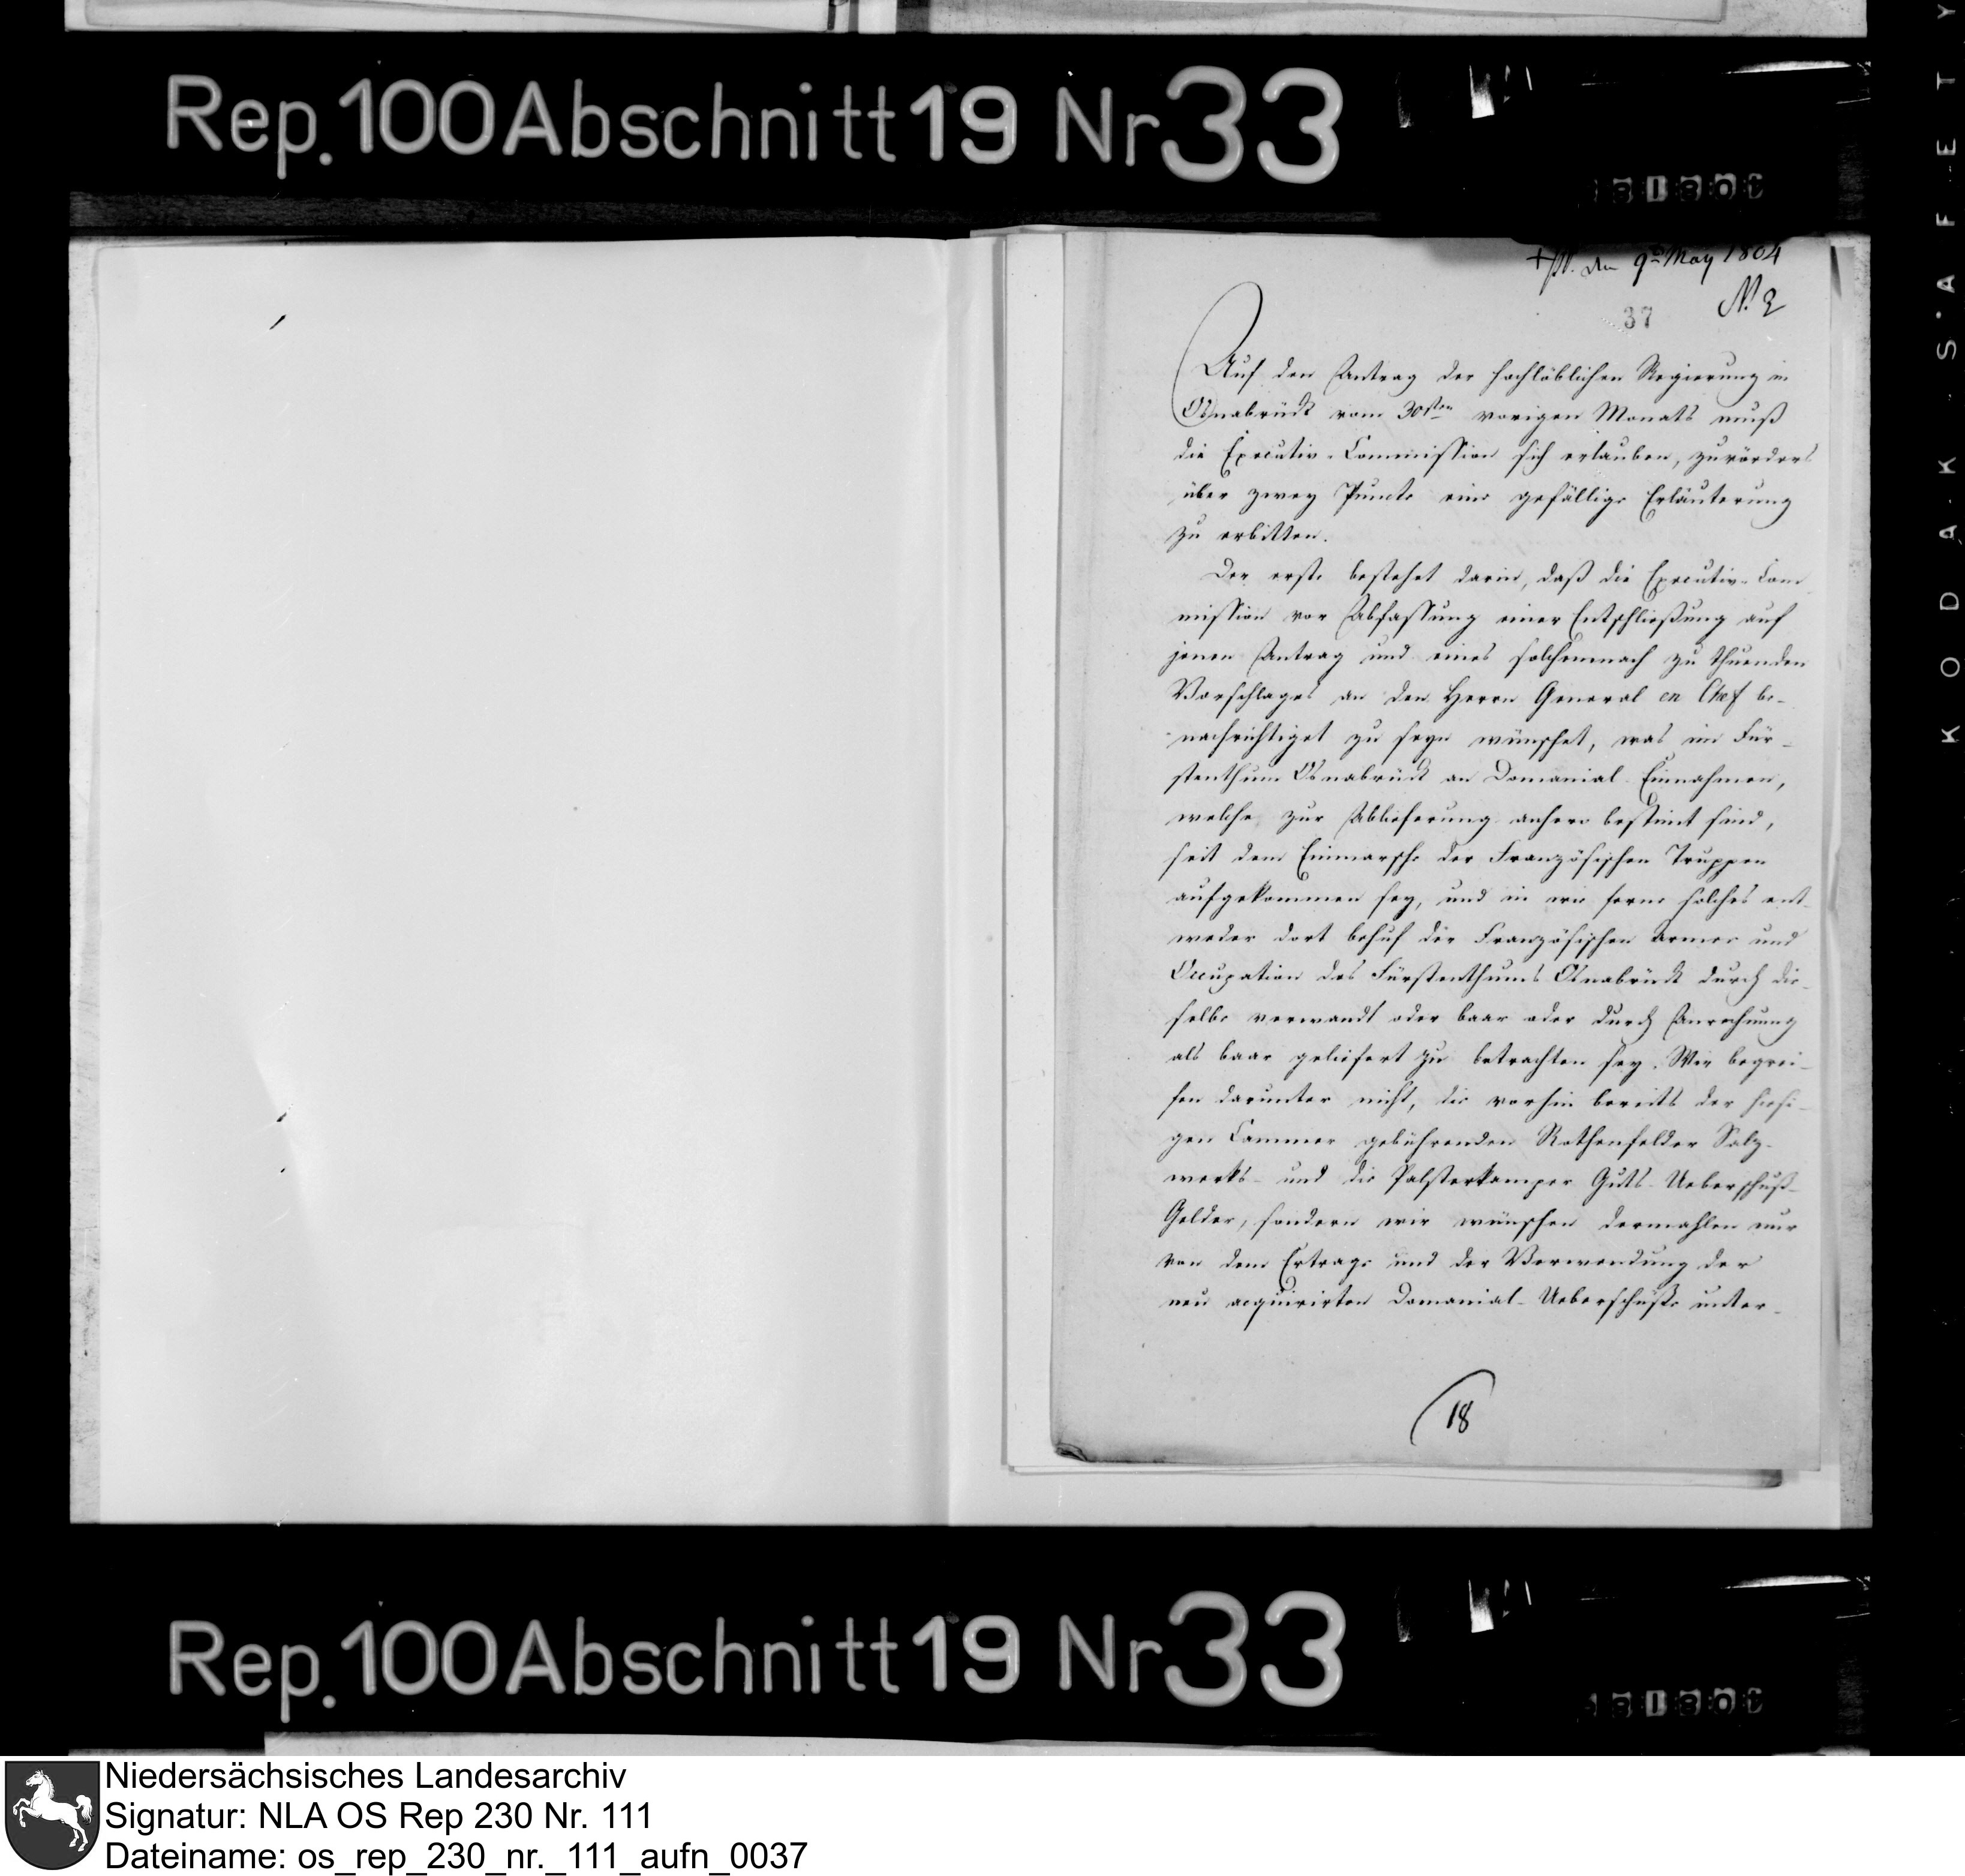 Rep. 100 Abschnitt 19 Nr 33
den 9ᵗ May 1804
N. 2
37
Auf den Antrag der hochlöblichen Regierung in
Osnabrück vom 30sten vorigen Monats muß
die Executiv-Commission sich erlauben, zuvörders
über zwey Puncte eine gefällige Erläuterung
zu erbitten.
Der erste bestehet darin, daß die Executiv-Com
mission vor Abfassung einer Entschließung auf
jenen Antrag und eines solchemnach zu thuenden
Vorschlages an den Herrn General en Chef be-
nachrichtiget zu seyn wünschet, was im Für-
stenthum Osnabrück an Domanial-Einnahmen,
welche zur Ablieferung anhero bestimt sind,
seit dem Einmarsche der Französischen Truppen
aufgekommen sey, und in wie ferne solches ent-
weder dort behuf der Französischen Armee und
Occupation des Fürstenthums Osnabrück durch die-
selbe verwandt oder baar oder durch Anrechnung
als baar geliefert zu betrachten sey. Wir begrei-
fen darunter nicht, die vorhin bereits der hiesi-
gen Cammer gebührenden Rothenfelder Salz-
werks- und die Palsterkamper Guts-Ueberschuß-
Gelder, sondern wir wünschen dermahlen nur
von dem Ertrage und der Verwendung der
neu acquirirten Domanial-Ueberschüsse unter-
18
Rep. 100 Abschnitt 19 Nr 33
KODAK SAFETY
Niedersächsisches Landesarchiv
Signatur: NLA OS Rep 230 Nr. 111
Dateiname: os_rep_230_nr._111_aufn_0037